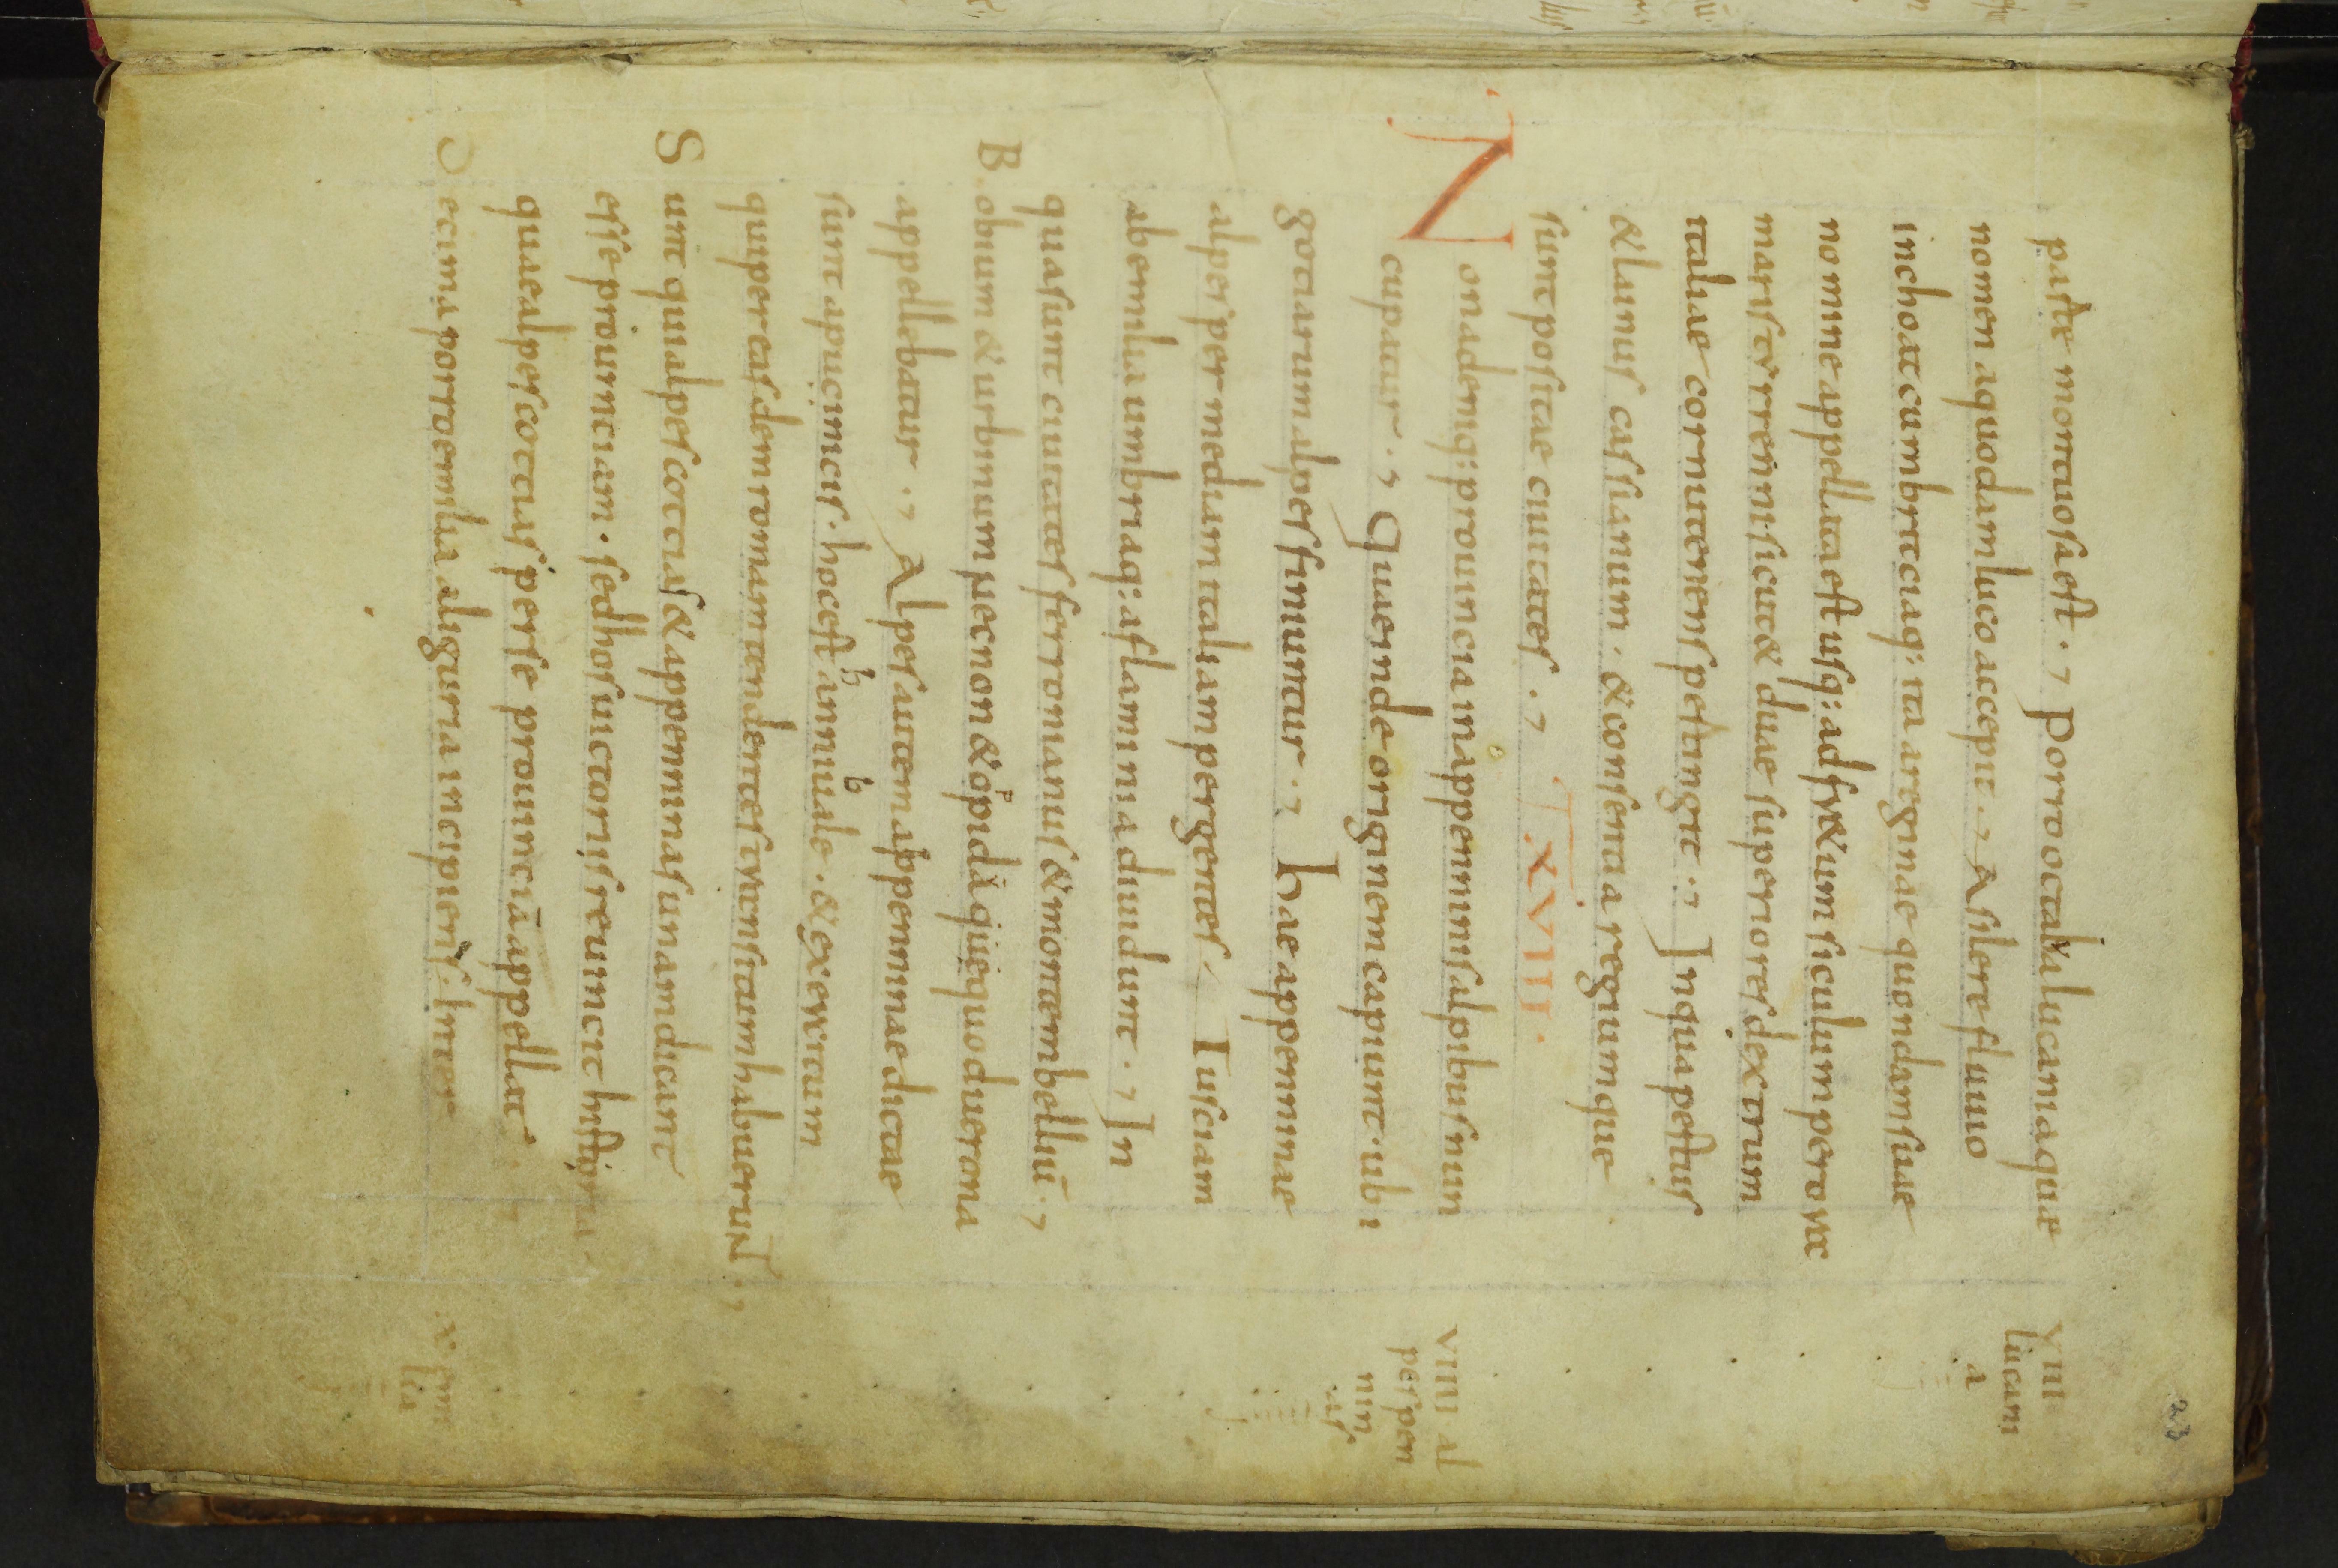 parte montuosa est. Porro octaba lucania quae
nomen a quodam luco accepit. A silere fluuio
inchoat cum britciaq: ita a reginae quondam suae
nomine appellata est usq: ad fretum siculum per ora
maris terreni sicut & duae superiores dextrum
italiae cornu tenens pertingit. In qua pestus
& lainus cassianum. & consentia regiumque
sunt positae ciuitates.
XVIII.
Nona deniq: prouincia in appenninis alpibus nun
cupatur. Quae inde originem capiunt. ubi
gotiarum alpes finiuntur. hae appenninae
alpes per mediam italiam pergentes Tusciam
ab emilia umbriaq: a flaminia diuidunt. In
qua sunt ciuitates ferronianus & montembelliū.
Bobium & urbinum necnon & opida que quod uerona
appellabatur. Alpes autem appenninae dictae
sunt a punicis. hoc est anniuale. & exercitum
qui per easdem romam tendentes transitum habuerunt.
Sunt qui alpes cottias & appenninas unam dicant
esse prouinciam. sed hos uictoris reuincit historia.
quae alpes cottias per se prouinciā appellat.
Decima porro emilia a liguria incipiens. Inter
VIII
lucani
a
VIIII al
pes pen
nin
as
X emi
lia
23